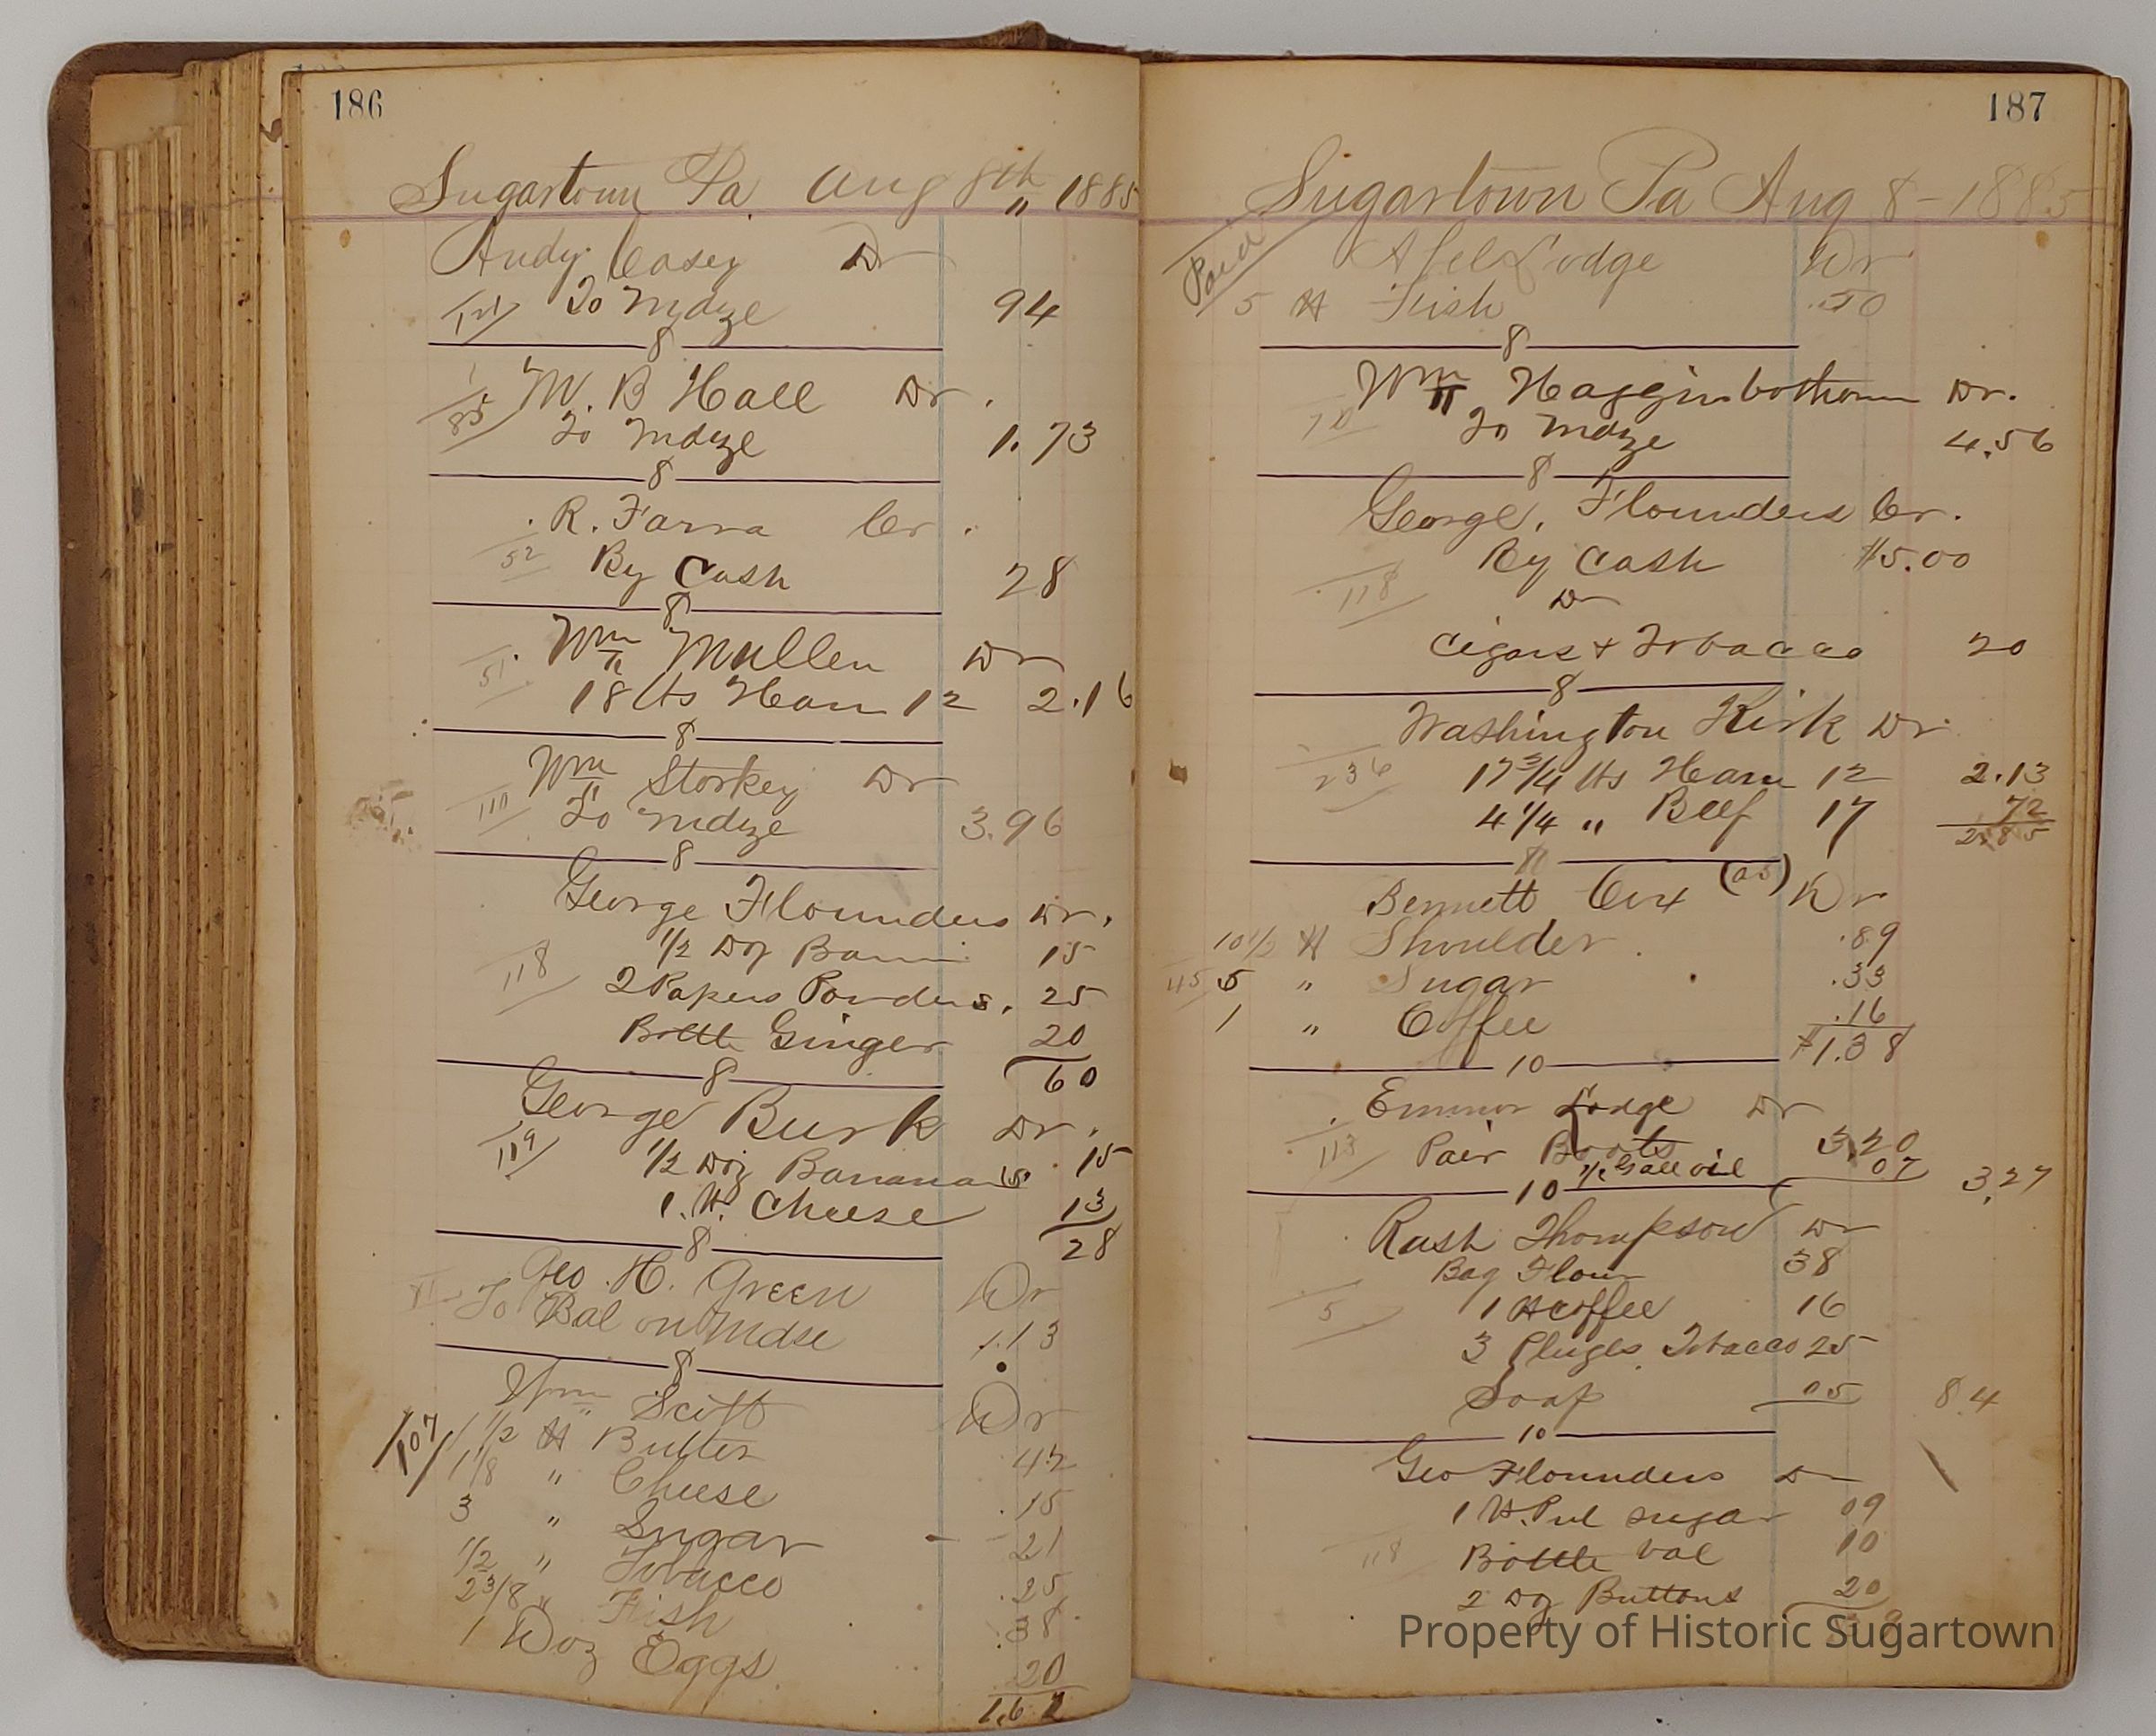 186
Sugartown Pa. Aug 8th 1885
Andy Casey Dr
121 To Mdze 94
8
M. B Hall Dr.
85 To Mdze 1.73
8
R. Farra Cr.
52 By Cash 28
8
Wm Mullen Dr
51 18 lbs Ham 12 2.16
8
Wm Storkey Dr
110 To Mdze 3.96
8
George Flounders Dr.
1/2 Dz 15
118 2 Papers Powders. 25
Bottle Ginger 20
8 60
George Burk Dr.
119 1/2 Doz Bananas 15
1 lb. Cheese 13
8 28
Geo. H. Green Dr
To Bal on Mdse 1.13
8
Wm Scott Dr
107 1 1/2 lb Butter 42
1 1/8 " Cheese .15
3 " Sugar 21
1/2 " Tobacco .25
2 3/8 " Fish .38
1 Doz Eggs 20
1.61
187
Sugartown Pa Aug 8-1885
Paid Abel Lodge Dr
5 lb Fish .50
8
Wm Hagginbothom Dr.
70 To Mdze 4.56
8
George. Flounders Cr.
By Cash $5.00
118 Dr
Cigars & Tobacco 20
8
Washington Kirk Dr
236 17 3/4 lbs Ham 12 2.13
4 1/4 " Beef 17 72
2.85
8
Bennett Cox Dr
10 1/2 lb Shoulder .89
115 5 " Sugar .33
1 " Coffee .16
10 $1.38
Emmor Lodge Dr
113 Pair Boots 3.20
1/2 Gall oil 07 3.27
10
Rush Thompson Dr
Bag Flour 38
5 1 lb coffee 16
3 Pluges Tobacco 25
Soap 05 84
10
Geo Flounders Dr
1 lb. Pul sugar 09
118 Bottle 10
2 Dz Buttons 20
39
Property of Historic Sugartown